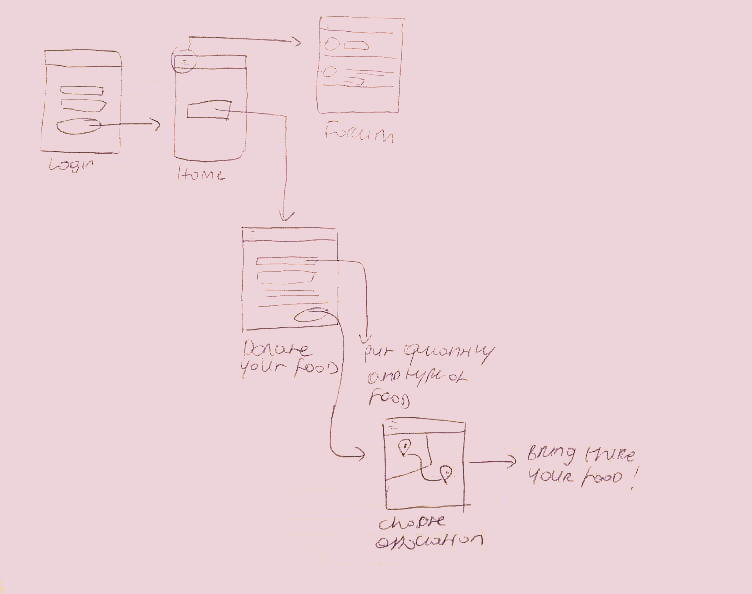 Login
Home
Forum
Donate
your food
put quantity
and type of
food
choose
association
Bring there
your food!